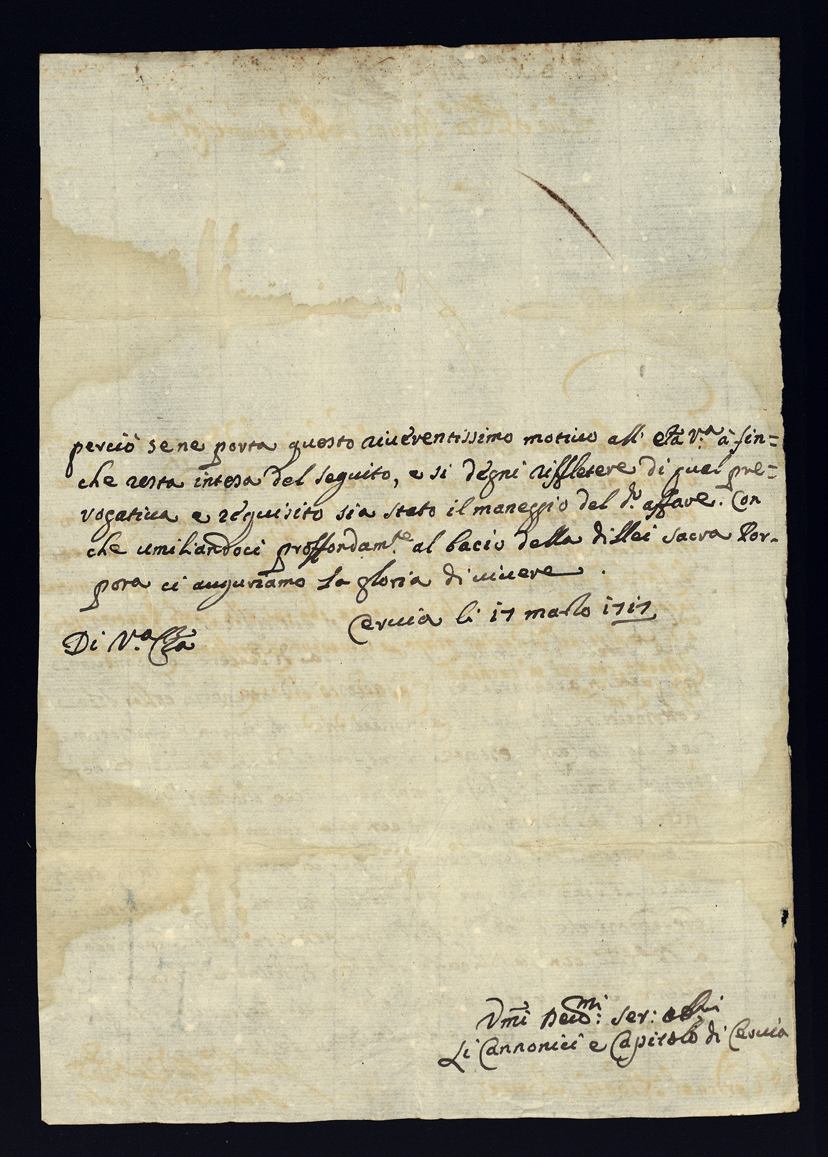 perciò se ne porta questo riuerentissimo motiuo all' Eza v.ra à fin=
che resta intesa del seguito, e si degni riffletere di qual pre=
rogatiua e requisito sia stato il maneggio del d.o affare. Con
che umiliandoci proffondam.te al bacio della di llei sacra Por-
pora ci auguriamo la gloria di uiuere.
Ceruia li 17 marzo 1717
Di V.a Eza
Vmi Deuomi: Ser: obbi
Li Cannonici e Capitolo di Ceruia